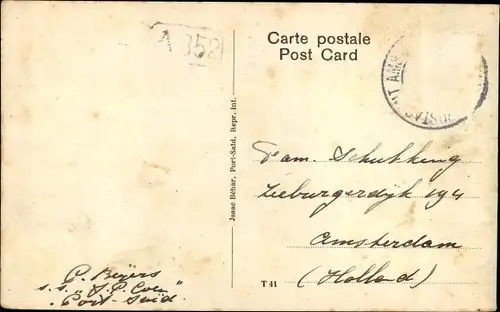 A 352
Carte postale
Post Card
Isaac Béhar, Port-Saïd, Repr. Int.
Fam. Schutking
Zeeburgerdijk 194
Amsterdam
(Holland)
T 41
C. Beijers
s.s. "J.P. Coen"
Port-Said.